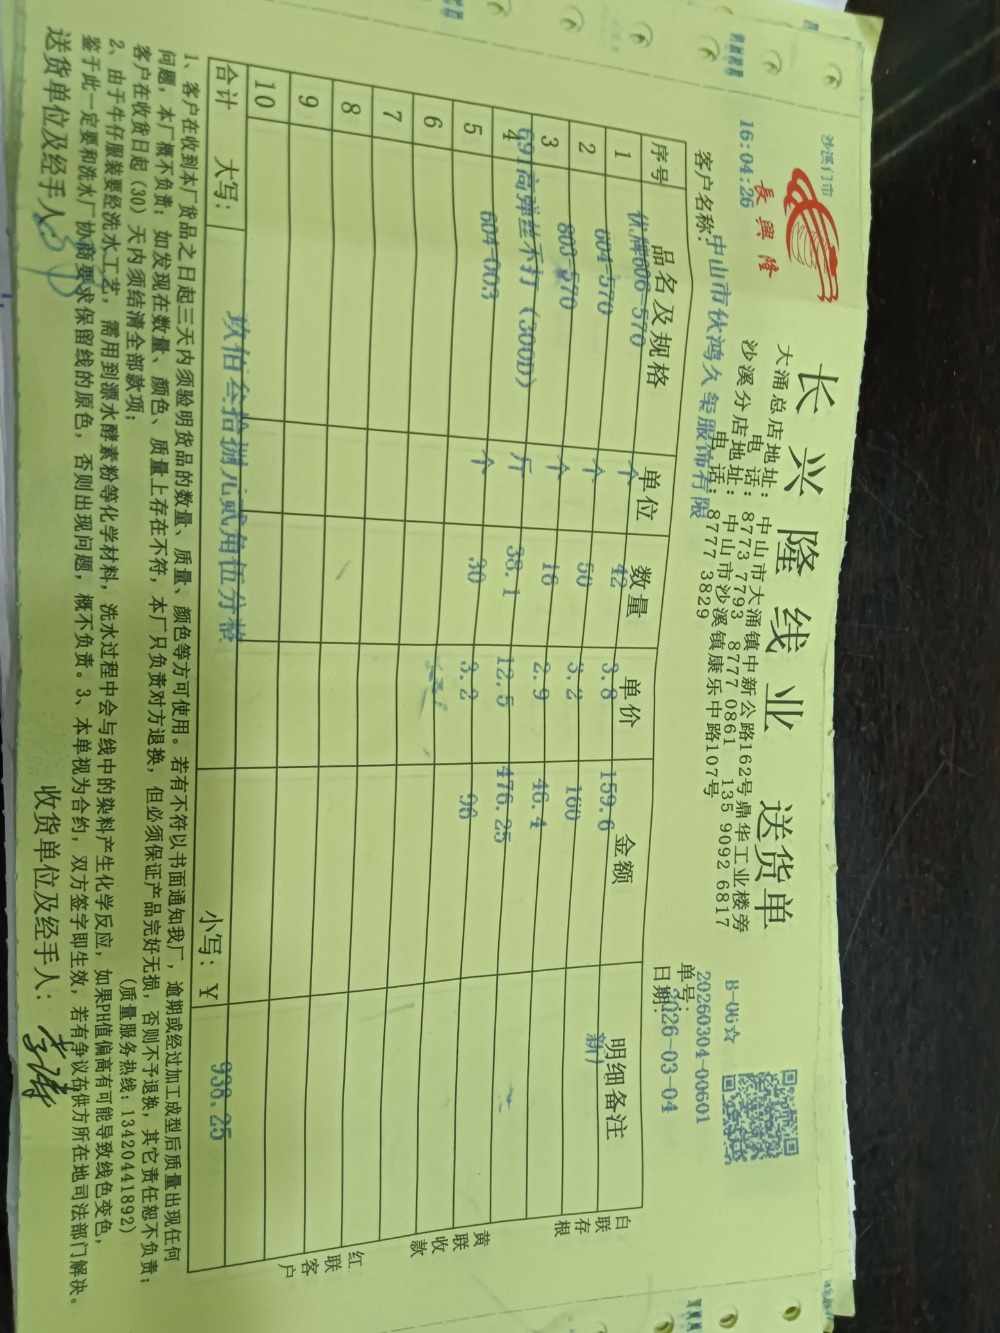 沙溪门市
長興隆
16:04:26
长兴隆线业 送货单
大涌总店地址：中山市大涌镇中新公路162号鼎华工业楼旁
电 话：8773 7793 8777 0861 135 9092 6817
沙溪分店地址：中山市沙溪镇康乐中路107号
电 话：8777 3829
B-06☆
单号：20260304-00601
日期：2026-03-04
客户名称：中山市伙鸿久玺服饰有限
序号 品名及规格 单位 数量 单价 金额 明细备注
1 优牌606-570 个 42 3.8 159.6 新厂
2 604-570 个 50 3.2 160
3 803-570 个 16 2.9 46.4
4 691高弹丝不打（300D） 斤 38.1 12.5 476.25
5 604-003 个 30 3.2 96
6
7
8
9
10
合计 大写：玖佰叁拾捌元贰角伍分整 小写：￥ 938.25
白联存根
黄联收款
红联客户
1、客户在收到本厂货品之日起三天内须验明货品的数量、质量、颜色等方可使用。若有不符以书面通知我厂，逾期或经过加工成型后质量出现任何
问题，本厂概不负责；如发现在数量、颜色、质量上存在不符，本厂只负责对方退换，但必须保证产品完好无损，否则不予退换，其它责任恕不负责；
客户在收货日起（30）天内须结清全部款项；
（质量服务热线：13420441892）
2、由于牛仔服装要经洗水工艺，需用到漂水酵素粉等化学材料，洗水过程中会与线中的染料产生化学反应，如果PH值偏高有可能导致线色变色，
鉴于此一定要和洗水厂协商要求保留线的原色，否则出现问题，概不负责。3、本单视为合约，双方签字即生效，若有争议在供方所在地司法部门解决。
送货单位及经手人：
收货单位及经手人：